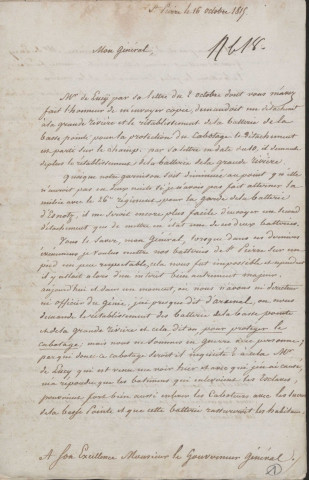 St Pierre le 16 octobre 1815
N° 18.
Mon Général,
Mr de Lucy par sa lettre du 8 octobre dont vous m'avez
fait l'honneur de m'envoyer copie, demandoit un détachement
à la grande rivière et le rétablissement de la batterie de la
basse pointe pour la protection du Cabotage, le Détachement
est parti sur le champ, par sa lettre en date du 10, il demande
de plus le rétablissement de la batterie de la grande rivière
Quoique notre garnison soit diminuée, au point qu'elle
n'auroit pas eu trop nuits si je n'avois pas fait alterner la
milice avec le 26e régiment, pour la garde de la batterie
d'Esnotz, il me seroit encore plus facile d'envoyer un second
détachement que de mettre en état une de ces deux batteries.
Vous le savez, mon Général, lorsque dans un des derniers
je voulus mettre nos batteries de St Pierre sur un
pied un peu respectable, cela nous fut impossible, et cependant
il y alloit alors d'un intérêt bien autrement majeur,
aujourd'hui et dans un moment, où nous n'avons ni directeur
ni officier du Génie, j'ai presque dit d'arsenal, on nous
demande le rétablissement des batteries de la basse pointe
et de la grande rivière et cela dit on pour protéger le
cabotage, mais nous ne sommes en guerre avec personne;
par qui donc ce cabotage seroit il inquiété ? à cela Mr
de Lucy qui est venu me voir hier et avec qui j'en ai causé,
me répondu que les batimens qui enlevoient les Esclaves,
pourroient fort bien aussi enlever les Caboteurs avec les
de la basse Pointe et que cette batterie rassureroit les habitans
A Son Excellence Monsieur le Gouverneur Général
1